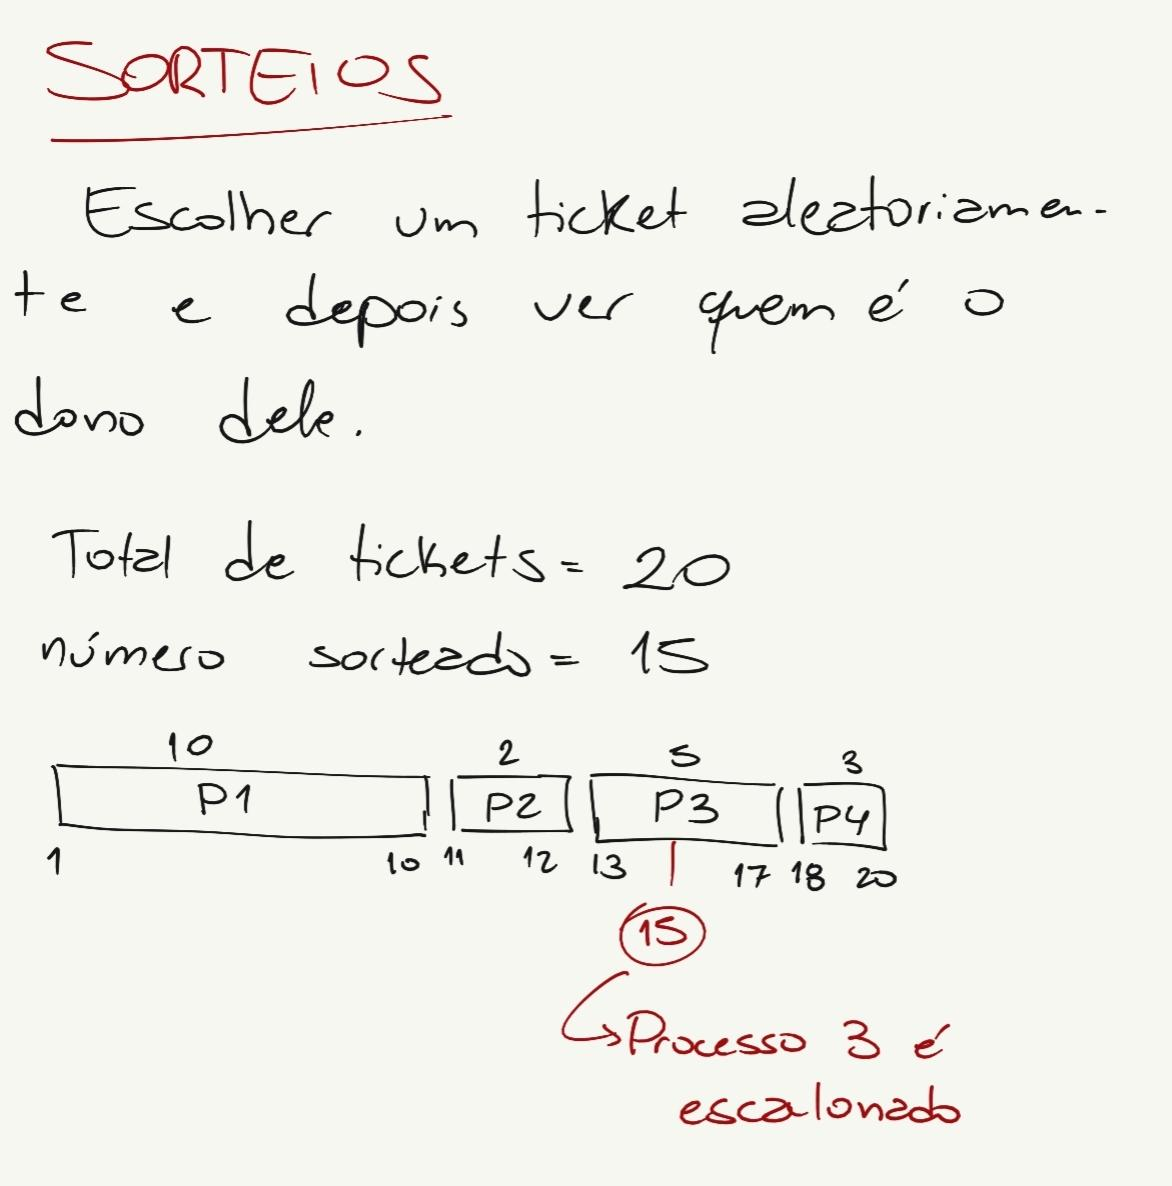 SORTEIOS
Escolher um ticket aleatoriamen-
te e depois ver quem é o
dono dele.
Total de tickets = 20
número sorteado = 15
10 2 5 3
P1 P2 P3 P4
1 10 11 12 13 17 18 20
15
Processo 3 é
escalonado